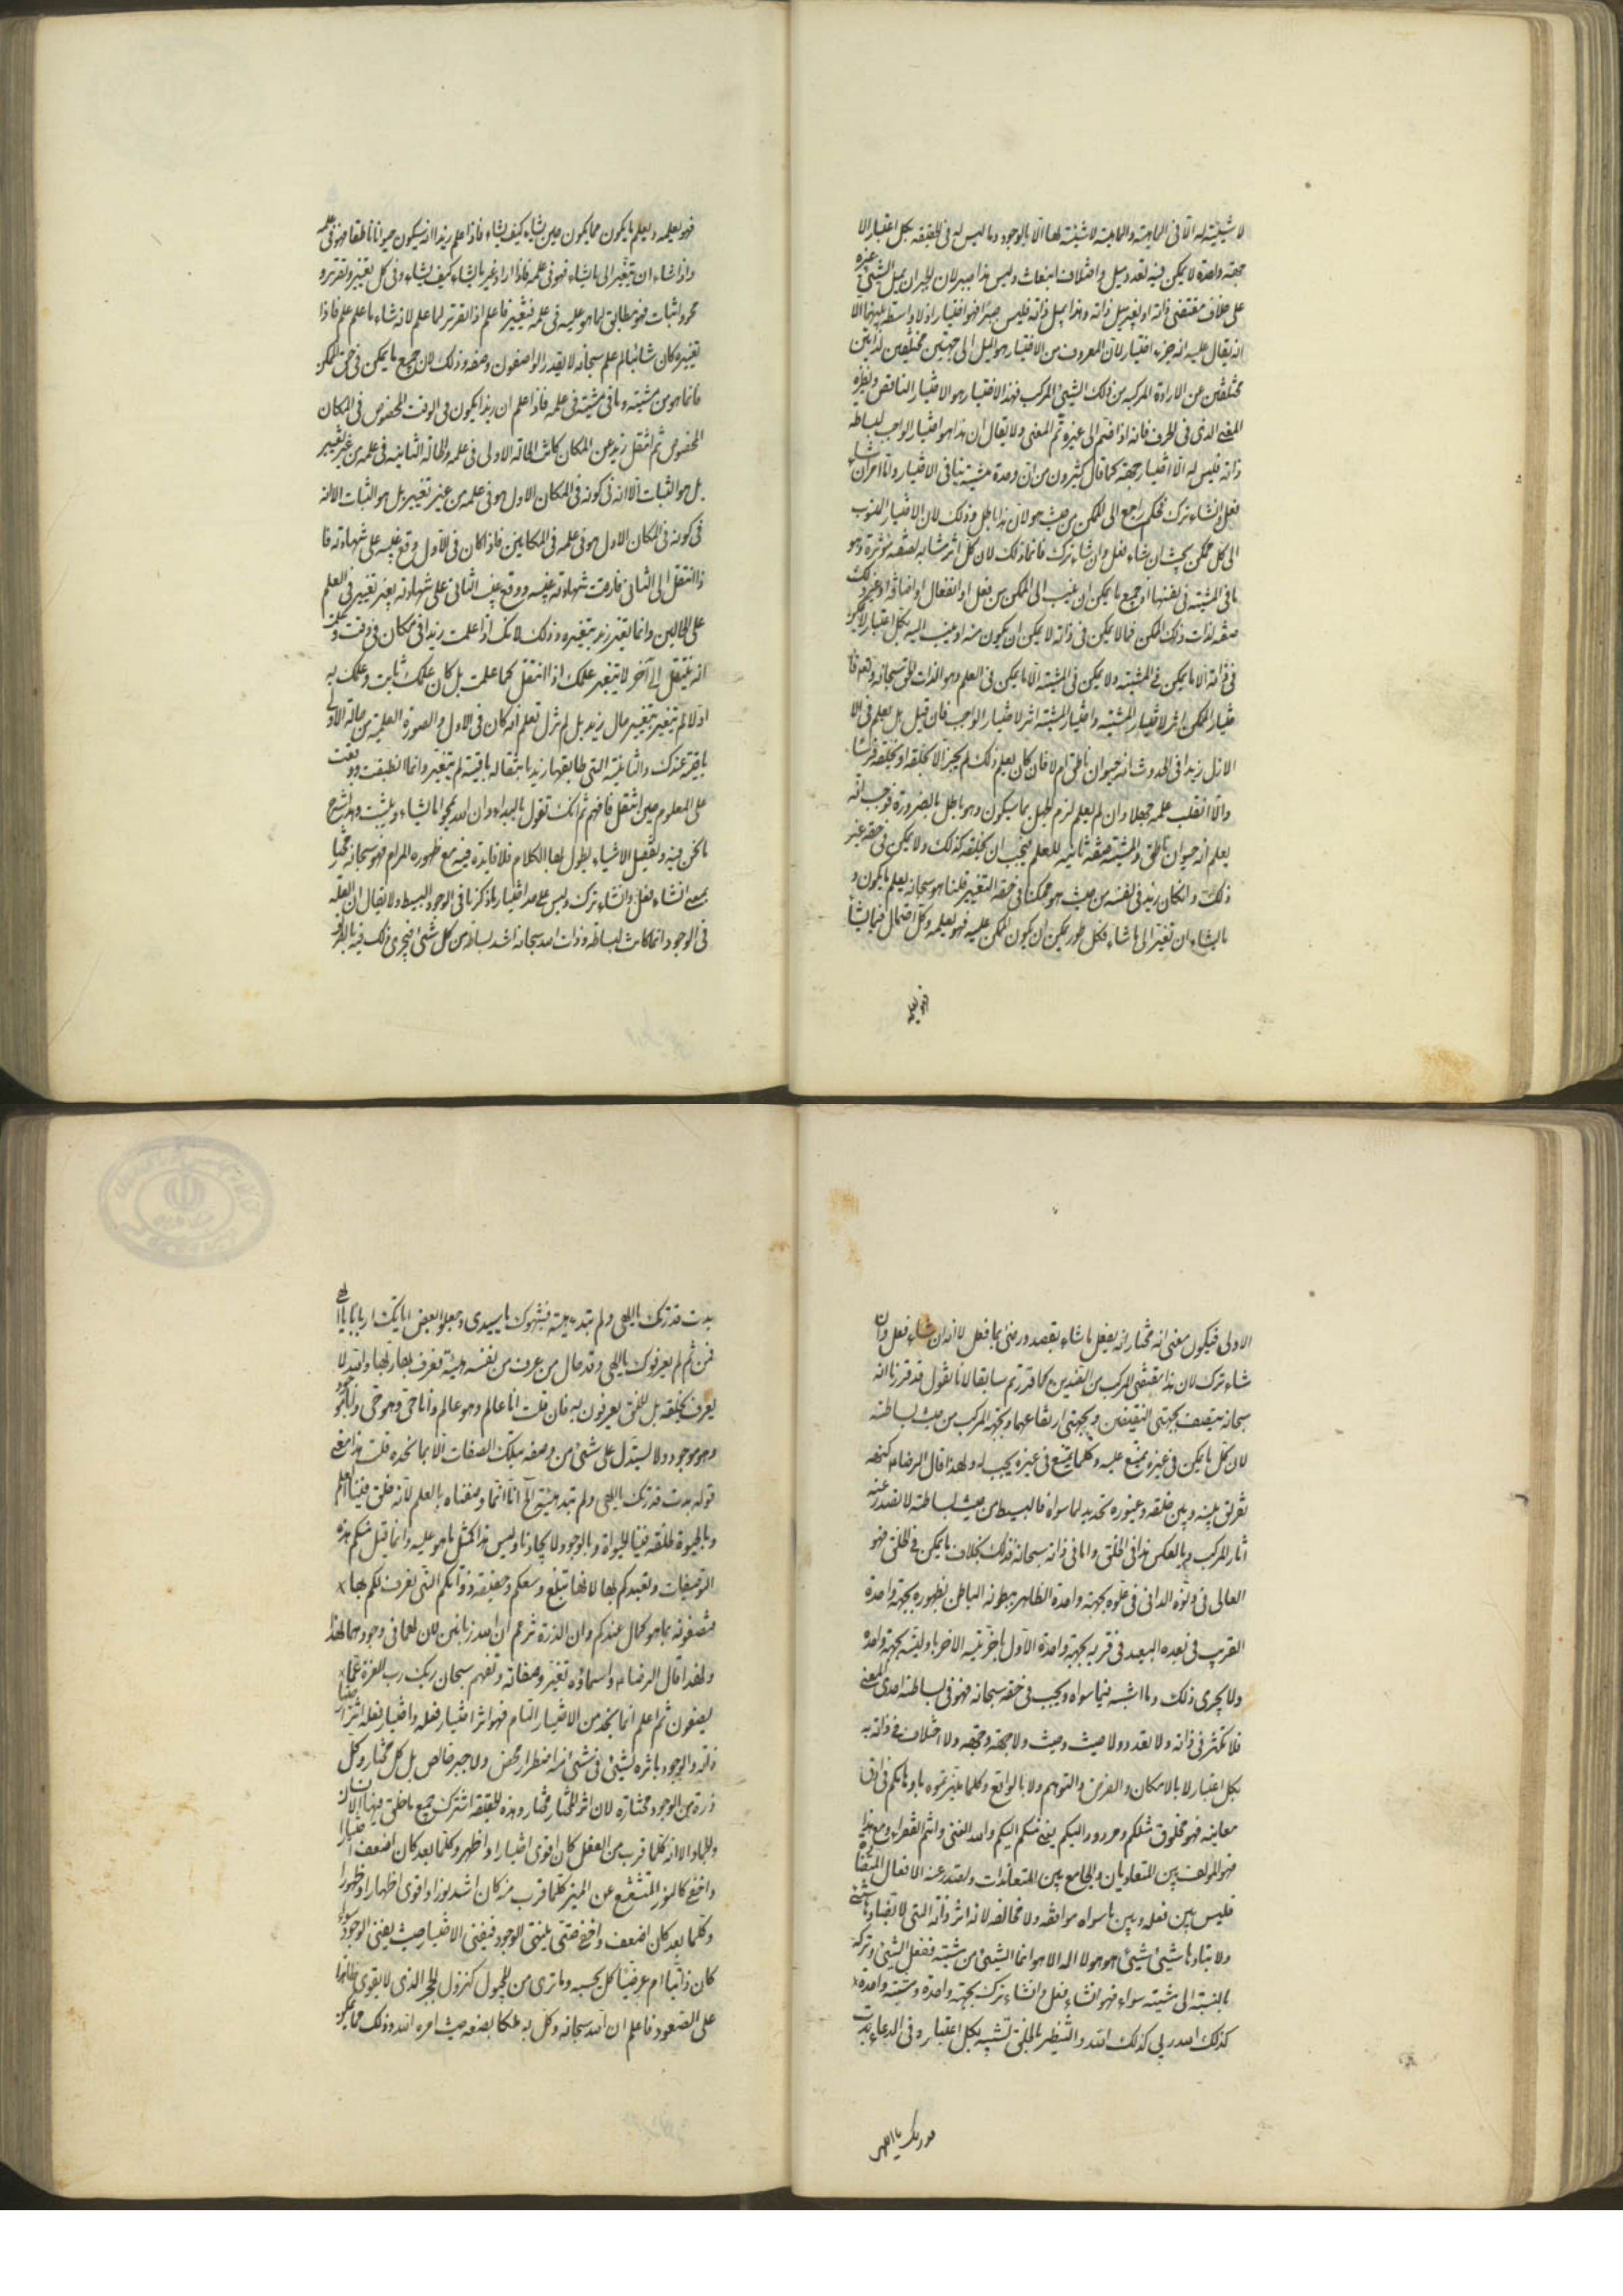 لا شيئية له الا في الماهية والماهية لا شيئية لها الا بالوجود وما ليس له في الحقيقة بكل اعتبار الا
جهة واحدة لا يمكن فيه تعدد ميل واختلاف انبعاث وليس هذا جبر لان الجبر ان يميل الشيء غيره
على خلاف مقتضى ذاته او بغير ميل ذاته وهذا يميل ذاته فليس جبرا فهو اختيار اذ لا واسطة بينهما الا
انه يقال عليه انه جزء اختيار لان المعروف من الاختيار هو الميل الى جهتين مختلفتين لذاتين
مختلفتين عن الارادة المركبة من ذلك الشيء المركب فهذا الاختيار هو الاختيار الناقص ونظيره
المعنى الذي في الحرف فانه اذا ضم الى غيره تم المعنى ولا يقال ان هذا هو اختيار الواجب لبساطة
ذاته فليس له الا اختيار جهة كما قال كثيرون من ان وحدة مشيته ينافي الاختيار واما امر ان شاء
فعل وان شاء ترك فحكم راجع الى الممكن من حيث هو لان هذا باطل وذلك لان الاختيار المنسوب
الى كل ممكن بحيث ان شاء فعل وان شاء ترك فانما ذلك لان كل اثر مشابه لصفة مؤثره وهو
ما في المشية في نفسها او جميع ما يمكن ان ينسب الى الممكن من فعل او انفعال او اضافة او غير ذلك
صفة لذات ذلك الممكن فما لا يمكن في ذاته لا يمكن ان يكون منه او ينسب اليه بكل اعتبار لا يمكن
في ذاته الا ما يمكن في المشية ولا يمكن في المشية الا ما يمكن في العلم وهو الذات الحق سبحانه وتعالى فا
ختيار الممكن اثر لاختيار المشية واختيار المشية اثر لاختيار الواجب فان قيل بل يعلم في الا
الازل زيدا في الحدوث انه حيوان ناطق ام لا فان كان يعلم ذلك لم يجز الا يخلقه او يخلقه فرسا
والا انقلب علمه جهلا وان لم يعلم لزم الجهل بما سيكون وهو باطل بالضرورة فوجب انه
يعلم انه حيوان ناطق والمشية صفة تابعة للعلم فيجب ان يخلقه كذلك ولا يمكن في حقه غير
ذلك وان كان زيد في نفسه من حيث هو ممكنا في حقه التغيير قلنا هو سبحانه يعلم ما يكون و
ما يشاء ان تغير الى ما شاء فكل طور يمكن ان يكون الممكن عليه فهو يعلمه وكل احتمال فيما يشاء
فهو بعلمه
فهو يعلمه ويعلم ما يكون مما يكون حين يشاء كيف يشاء فاذا علم زيدا انه سيكون حيوانا ناطقا فهو في علمه
واذا شاء ان يتغير الى ما يشاء فهو في علمه فاذا اراد غير ما يشاء كيف يشاء وفي كل تغيير وتقرير و
محو واثبات فهو مطابق لما هو عليه في علمه فتغيير ما علم اذا تقرير لما علم لانه شاء ما علم علم فاذا
تغييره كان شائيا لم علم سبحانه لا يقدر الواصفون وصفه وذلك لان جميع ما يمكن في حق الممكن
فانما هو من مشيته وما في مشيته في علمه فاذا علم ان زيدا يكون في الوقت المخصوص في المكان
المخصوص ثم انتقل زيد عن المكان كانت الحالة الاولى في علمه والحالة الثانية في علمه من غير تغيير
بل هو الثبات الا انه في كونه في المكان الاول هو في علمه من غير تغيير بل هو الثبات الا انه
في كونه في المكان الاول هو في علمه في المكانين فاذا كان في الاول وقع غيبه على شهادته فا
ذا انتقل الى الثاني فارقت شهادته غيبه ووقع غيب الثاني على شهادته بغير تغيير في العلم
على الحالين وانما يتغير زيد بتغيره وذلك لانك اذا علمت زيدا في مكان في وقت وعلمت
انه ينتقل الى آخر لا يتغير علمك اذا انتقل كما علمت بل كان علمك ثابت وعلمك به
اولا لم يتغير بتغيير حال زيد بل لم تزل تعلم انه كان في الاول والصورة العلمية من حالته الاولى
باقية عندك والثانية التي طابقها زيد بانتقاله باقية لم يتغير وانما انطبقت ووقعت
على المعلوم حين انتقل فافهم ثم انك تقول بالبداء وان الله يمحو ما يشاء ويثبت وهذا شرح
ما نحن فيه وتفصيل الاشياء يطول بها الكلام فلا فايدة فيه مع ظهوره المرام فهو سبحانه مختار
بمعنى ان شاء فعل وان شاء ترك وليس على حد اختيار ما ذكرنا في الوجود البسيط ولا يقال ان العلة
في الوجود انما كانت لبساطته وذات الله سبحانه اشد بساطة من كل شيء فيجري ذلك فيه بالطريق
الاولى فيكون معنى انه مختار انه يفعل ما شاء بقصد ورضى بما فعل لا انه ان شاء فعل وان
شاء ترك لان هذا مقتضى المركب من الضدين كما قررتم سابقا لانا نقول قد قررنا انه
سبحانه يتصف بجهتي النقيضين وبجهتي ارتفاعهما وبجهة المركب من حيث بساطته
لان كل ما يمكن في غيره يمتنع عليه وكلما يمتنع في غيره يجب له ولهذا قال الرضا ع كنهه
تفريق بينه وبين خلقه وغيوره تحديد لما سواه فالبسيط من حيث بساطته لا تصدر عنه
آثار المركب وبالعكس هذا في الخلق واما في ذاته سبحانه فذلك بخلاف ما يمكن في الخلق فهو
العالي في دنوه الداني في علوه بجهة واحدة الظاهر ببطونه الباطن بظهوره بجهة واحدة
القريب في بعده البعيد في قربه بجهة واحدة الاول بآخريته الآخر باوليته بجهة واحدة
ولا يجري ذلك وما اشبه فيما سواه ويجب في حقه سبحانه فهو في بساطته احدي المعنى
فلا تكثر في ذاته ولا تعدد ولا حيث وحيث ولا جهة وجهة ولا اختلاف في ذاته به
بكل اعتبار لا بالامكان والفرض والتوهم ولا بالواقع وكلما ميزتموه باوهامكم في ادق
معانيه فهو مخلوق مثلكم مردود اليكم يعني منكم اليكم والله الغني وانتم الفقراء ومع هذا
فهو المؤلف بين المتعاديات والجامع بين المتعاندات وتصدر عنه الافعال المتضادة
فليس بين فعله وبين ما سواه موافقة ولا مخالفة لانه اثر ذاته التي لا تضادها شيء
ولا يناوها شيء اشيء هو هو لا اله الا هو انما الشيء من مشيته ففعل الشيء وتركه
بالنسبة الى مشيته سواء فهو ان شاء فعل وان شاء ترك بجهة واحدة ومشية واحدة
كذلك الله ربي كذلك الله والتنظير بالخلق تشبيه بكل اعتبار وفي الدعاء بدت
قدرتك يا الهي
بدت قدرتك يا الهي ولم تبد هيئة فشبهوك يا سيدي وجعلوا بعض آياتك اربابا يا الهي
فمن ثم لم يعرفوك يا الهي وقد حال من عرف من نفسه هيئة فعرف بها ربها والله لا
يعرف بخلقه بل الخلق يعرفون به فان قلت انا عالم وهو عالم وانا حي وهو حي وانا موجود
وهو موجود ولا يستدل على شيء من وصفه بتلك الصفات الا بما نجده قلت هذا معنى
قوله بدت قدرتك يا الهي ولم تبد هيئة الخ انا انما وصفناه بالعلم لانه خلق فينا العلم
وبالحيوة لخلقه فينا الحيوة وبالوجود لايجادنا وليس هذا كمثل ما هو عليه وانما قبل منكم هذه
التوصيفات وتعبدكم بها لانها مبلغ وسعكم وحقيقة ذواتكم التي تعرف لكم بها
فتصفونه بما هو كمال عندكم وان الذرة تزعم ان لله زبانين لان كمالها في وجودهما لها
ولهذا قال الرضا ع واسماؤه تعبير وصفاته وتفهيم سبحان ربك رب العزة عما
يصفون ثم اعلم انما نجد من الاختيار التام فهو اثر اختيار فعله واختيار فعله اثر اختيار
ذاته والوجود باثره لشيء في شيء انه اضطرار محض ولا جبر خالص بل كل مختار وكل
ذرة من الوجود مختارة لان اثر المختار مختار وهذه الحقيقة اشترك جميع ما خلق فيها الانسان
والجماد الا انه كلما قرب من الفعل كان اقوى اختيارا واظهر وكلما بعد كان اضعف اختيارا
واخفى كالنور المتشعشع عن المنير كلما قرب منه كان اشد نورا واقوى اظهارا وظهورا
وكلما بعد كان اضعف واخفى حتى ينتهي الوجود فيفنى الاختيار حيث يفنى الوجود سواء
كان ذاتيا ام عرضيا كل بحسبه وما ترى من المجبول كنزول الحجر الذي لا يقوى ظاهرا
على الصعود فاعلم ان الله سبحانه وكل به ملكا يضعه حيث امره الله وذلك مما يمكن